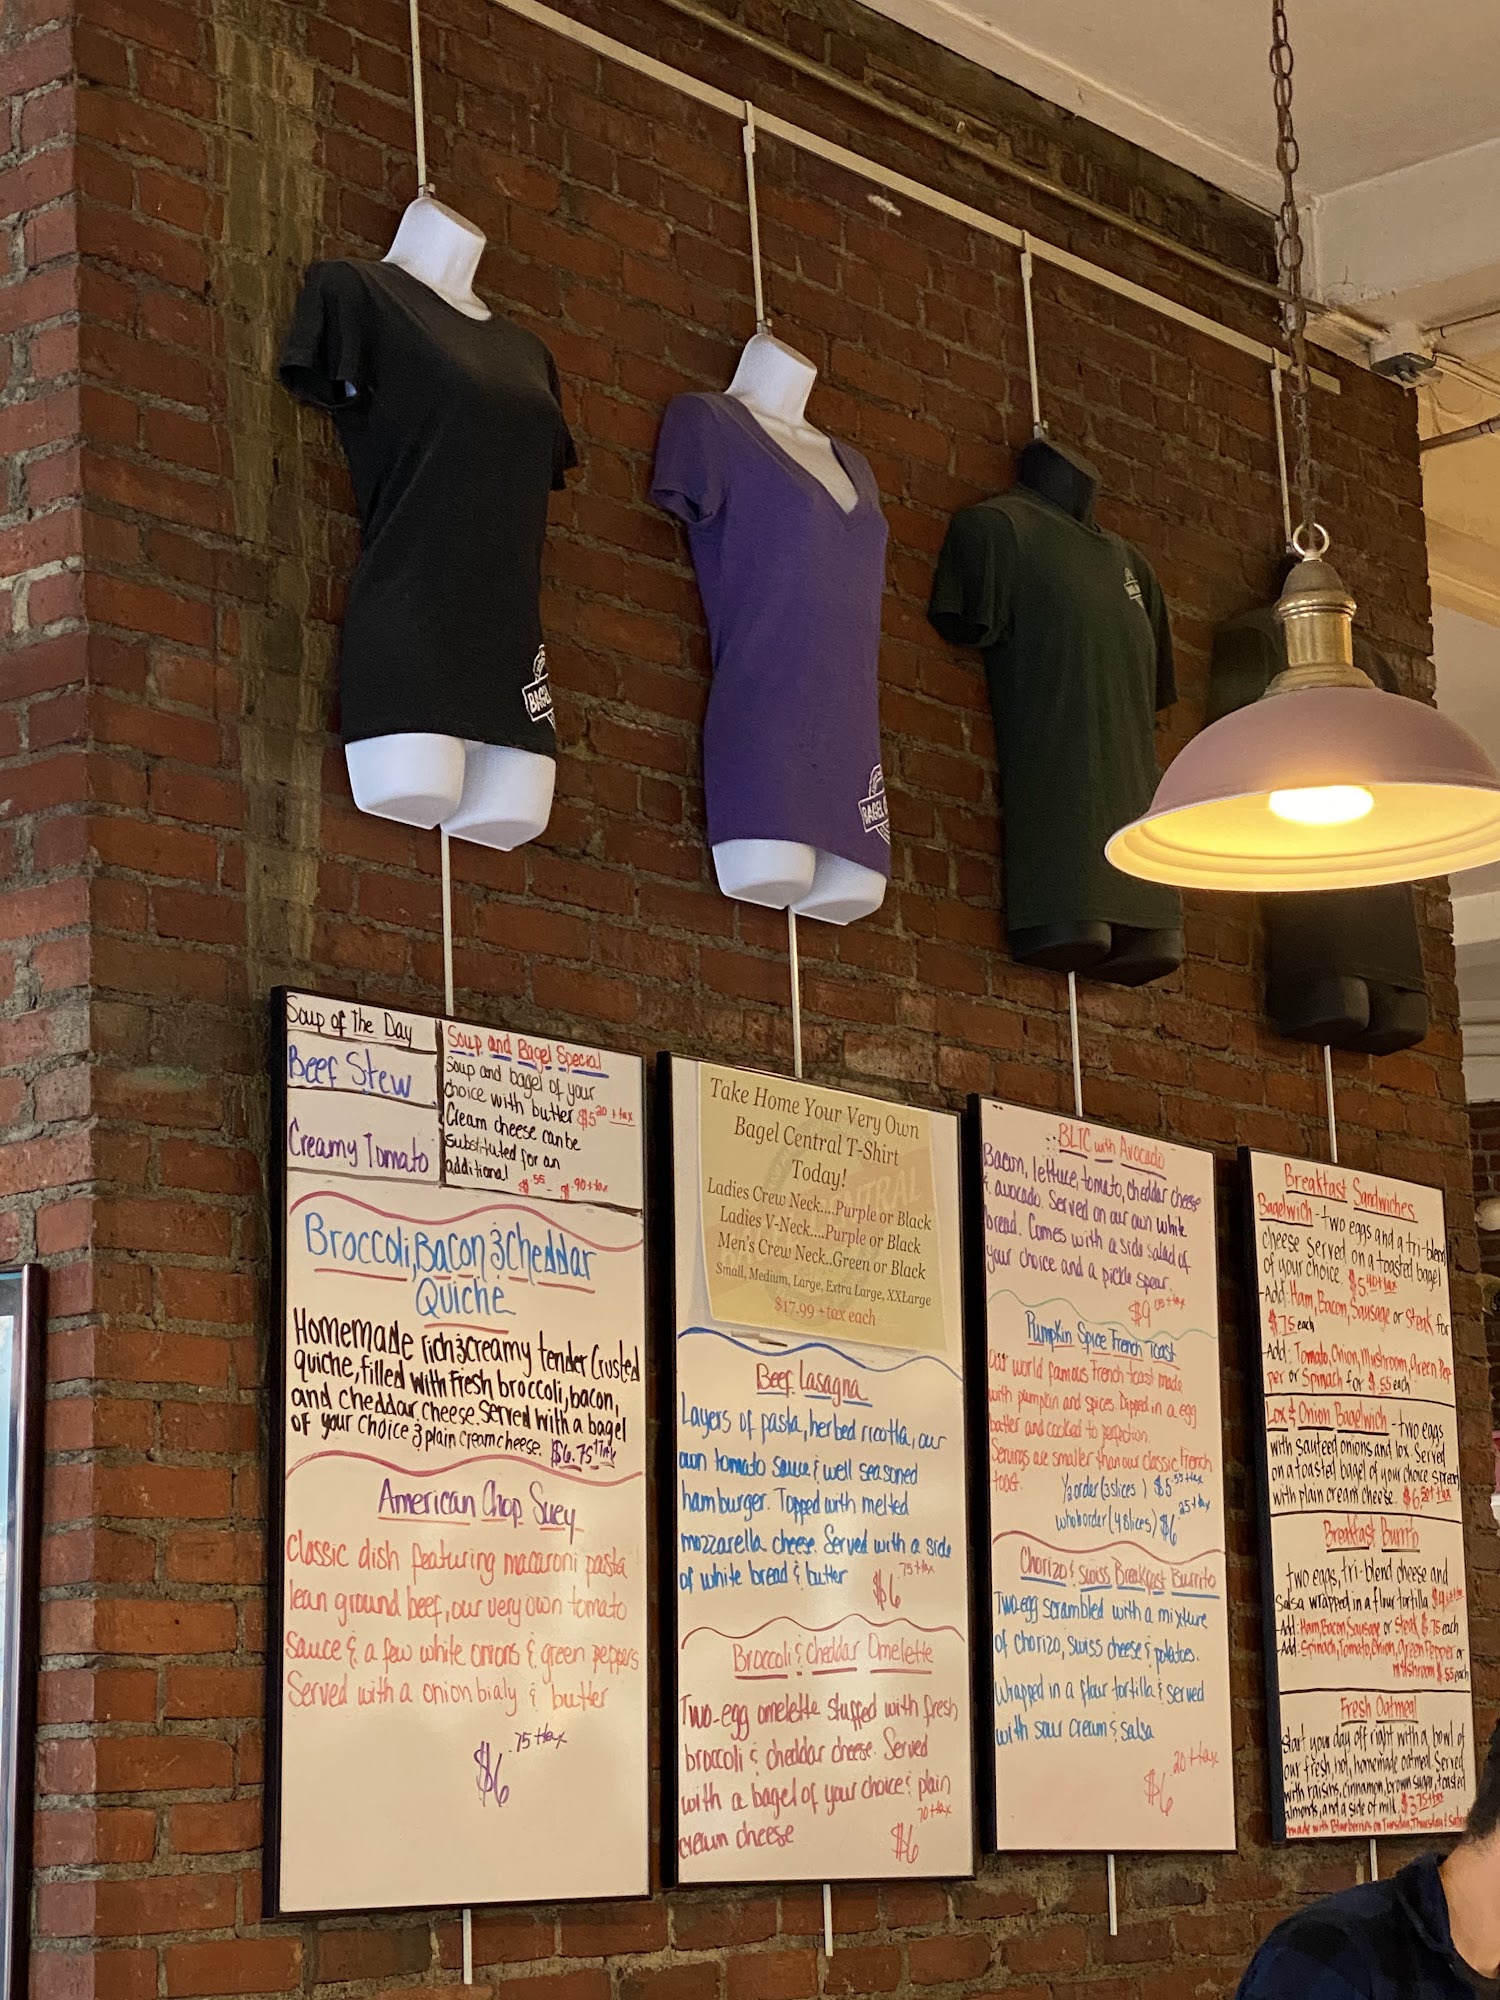 BAGEL
BAGEL C
Soup of The Day
Beef Stew
Creamy Tomato
Soup and Bagel Special
Soup and bagel of your
choice with butter $5.20 + tax
Cream cheese can be
substituted for an
additional $.55 - $.90 + tax
Broccoli, Bacon & Cheddar
Quiche
Homemade rich & creamy tender crusted
quiche, filled with fresh broccoli, bacon,
and cheddar cheese. Served with a bagel
of your choice & plain cream cheese. $6.75 + tax
American Chop Suey
Classic dish featuring macaroni pasta
lean ground beef, our very own tomato
sauce & a few white onions & green peppers
Served with a onion bialy & butter
$6.75 + tax
Take Home Your Very Own
Bagel Central T-Shirt
Today!
Ladies Crew Neck....Purple or Black
Ladies V-Neck....Purple or Black
Men's Crew Neck..Green or Black
Small, Medium, Large, Extra Large, XXLarge
$17.99 +tax each
Beef Lasagna
Layers of pasta, herbed ricotta, our
own tomato sauce & well seasoned
hamburger. Topped with melted
mozzarella cheese. Served with a side
of white bread & butter $6.75 + tax
Broccoli & Cheddar Omelette
Two-egg omelette stuffed with fresh
broccoli & cheddar cheese. Served
with a bagel of your choice & plain
cream cheese $6.70 + tax
BLTC with Avocado
Bacon, lettuce, tomato, cheddar cheese
& avocado. Served on our own white
bread. Comes with a side salad of
your choice and a pickle spear.
$9.05 + tax
Pumpkin Spice French Toast
Our world famous French toast made
with pumpkin and spices. Dipped in a egg
batter and cooked to perfection.
Servings are smaller than our classic French
toast. 1/2 order (3 slices) $5.55 + tax
whole order (4 slices) $6.25 + tax
Chorizo & Swiss Breakfast Burrito
Two egg scrambled with a mixture
of chorizo, swiss cheese & potatoes.
Wrapped in a flour tortilla & served
with sour cream & salsa
$6.20 + tax
Breakfast Sandwiches
Bagelwich - two eggs and a tri-blend
cheese served on a toasted bagel
of your choice. $5.40 + tax
-Add: Ham, Bacon, Sausage or Steak for
$.75 each
-Add: Tomato, Onion, Mushroom, Green Pep-
per or Spinach for $.55 each
Lox & Onion Bagelwich - two eggs
with sauteed onions and lox. Served
on a toasted bagel of your choice spread
with plain cream cheese. $6.50 + tax
Breakfast Burrito
two eggs, tri-blend cheese and
salsa wrapped in a flour tortilla.
-Add: Ham, Bacon, Sausage or Steak $.75 each
-Add: Spinach, Tomato, Onion, Green Pepper or
mushroom $.55 each
Fresh Oatmeal
Start your day off right with a bowl of
our fresh, hot, homemade oatmeal. Served
with raisins, cinnamon, brown sugar, toasted
almonds, and a side of milk. $3.75 + tax
made with Blueberries on Tuesday, Thursday &